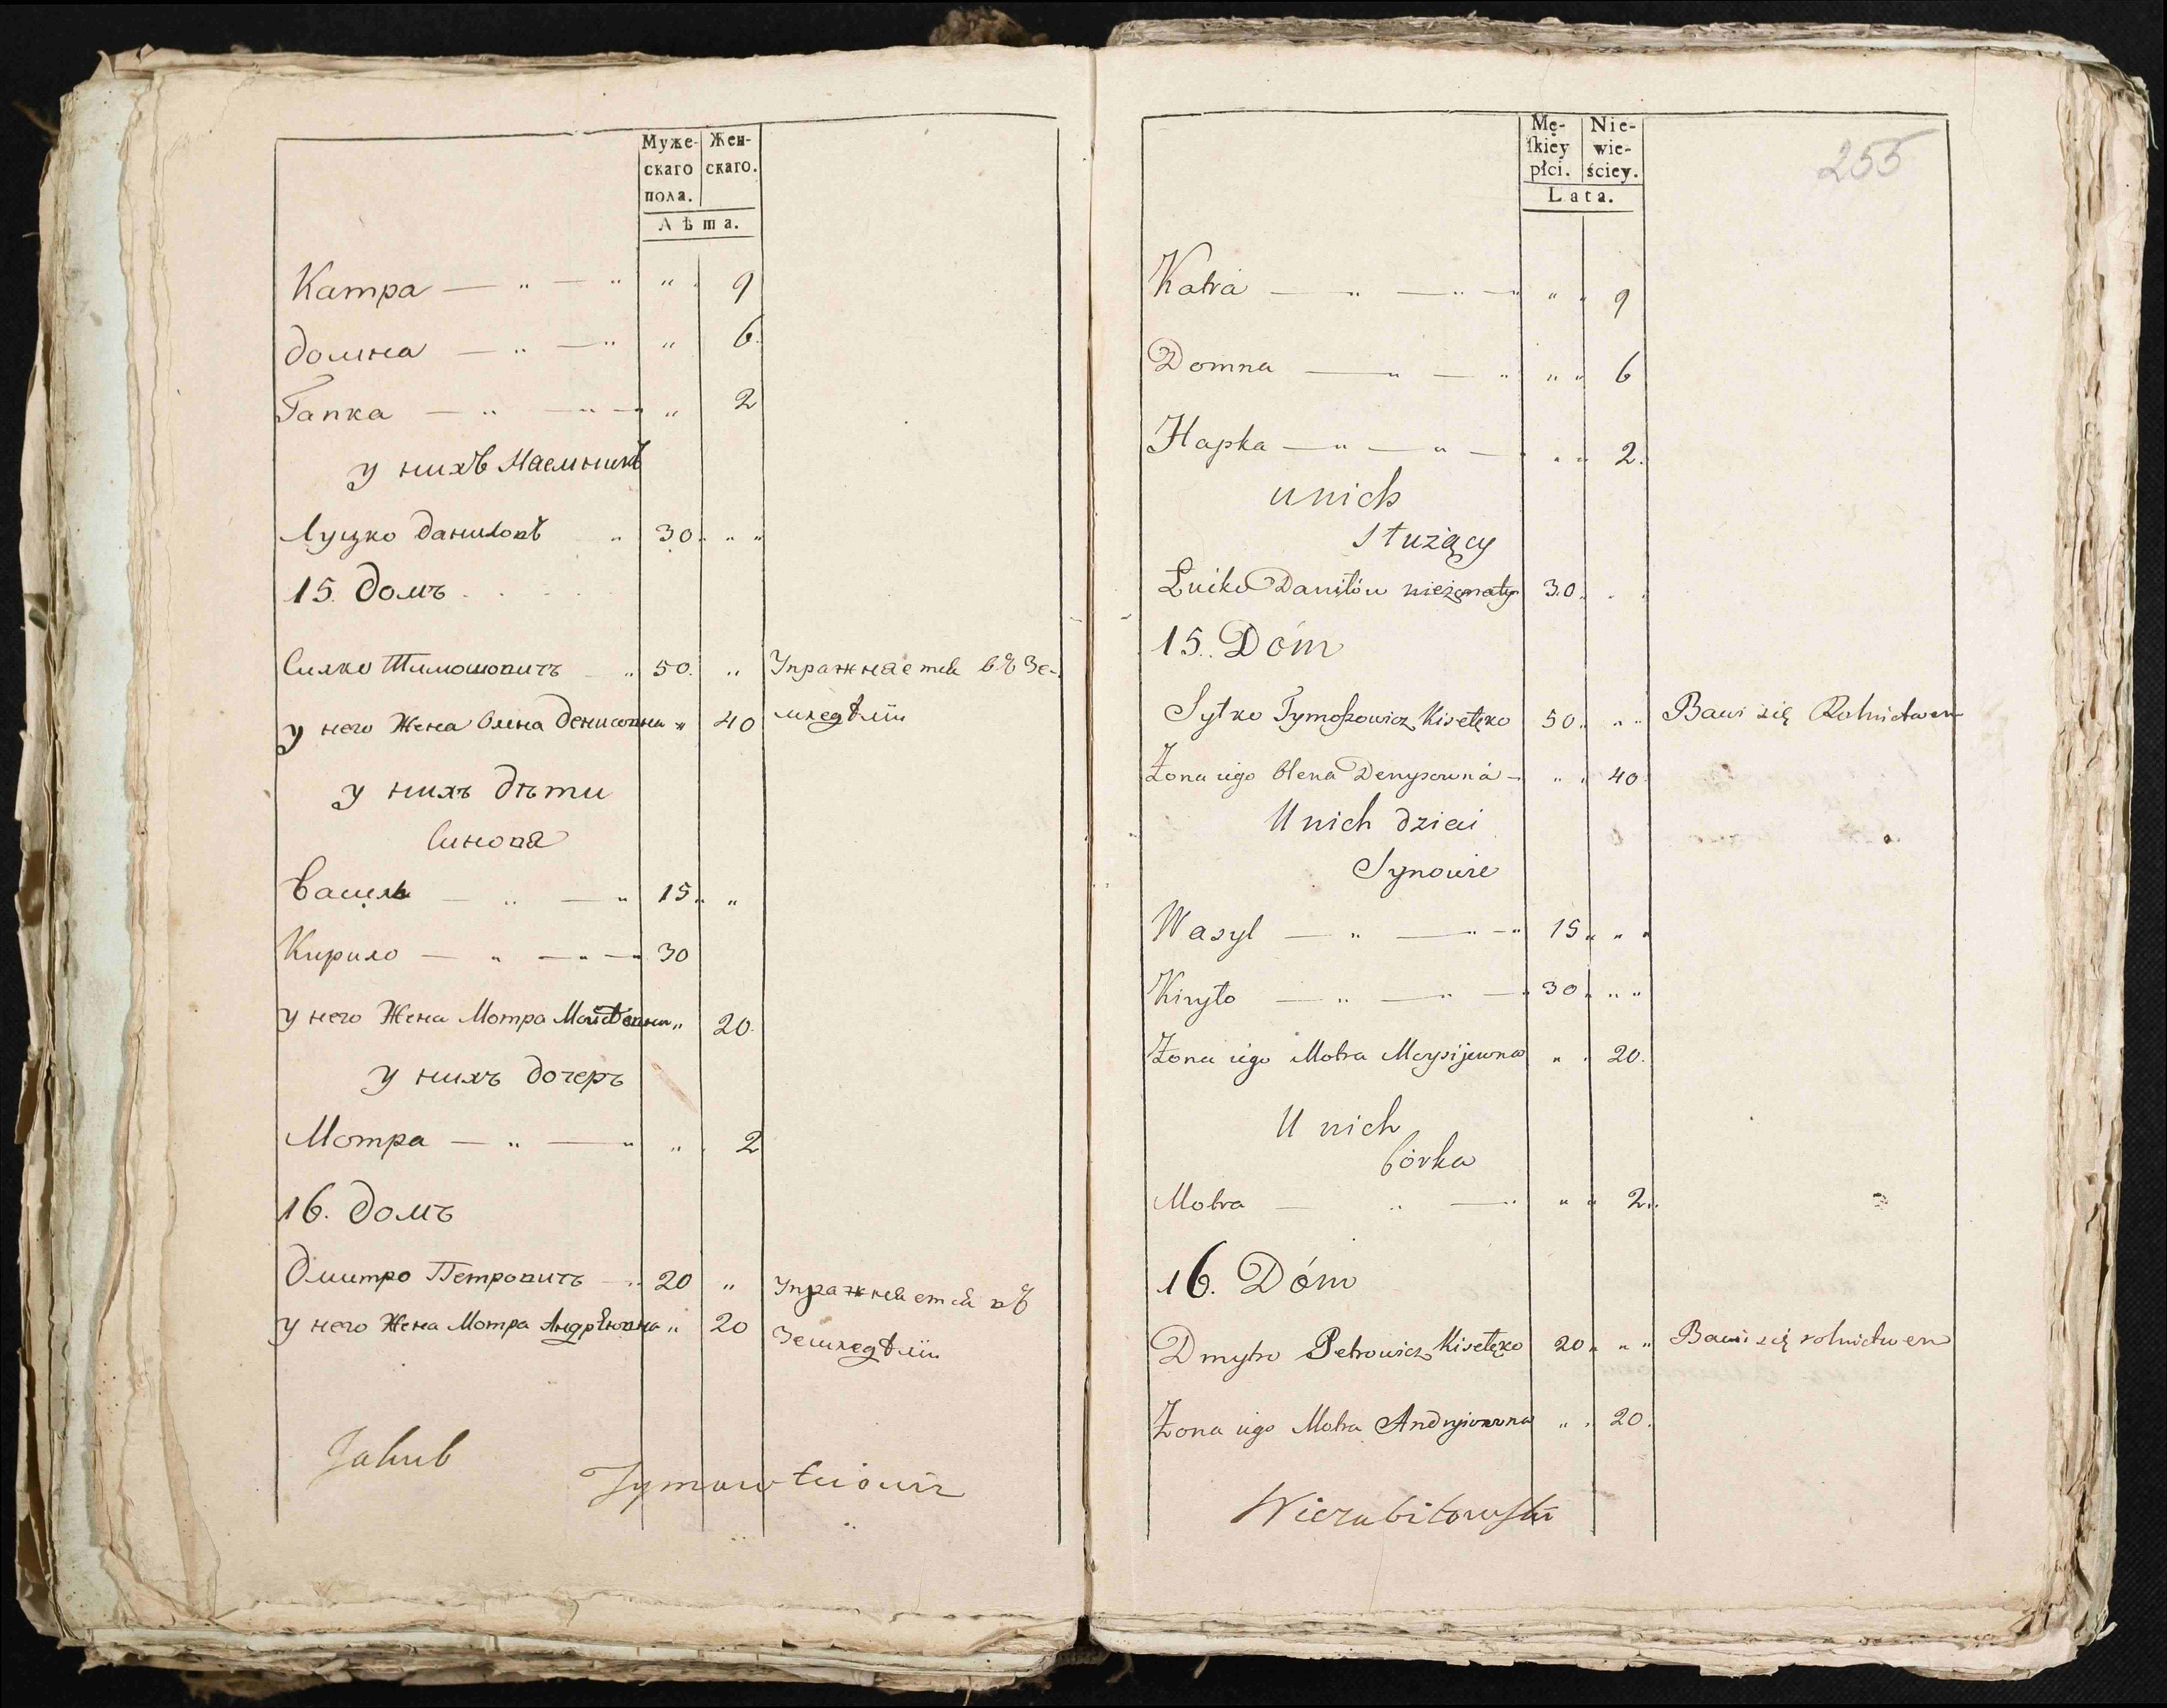 Муже- Жен-
скаго скаго.
пола.
Лѣта.
Катра — „ — „ „ 9
Домна — „ — „ „ 6.
Гапка — „ — „ — „ 2
у нихъ Наемникъ
Луцко Даниловъ „ 30. „ „
15. Домъ
Силко Тимошовичъ „ 50. „ Упражнаетса въ Зе-
у него Жена Олена Денисовна „ 40 мледѣліи
у нихъ дѣти
Синовя
Василь — „ — „ 15. „
Кирило — „ — „ — 30
у него Жена Мотра Моисѣевна „ 20.
у нихъ дочеръ
Мотра — „ — „ „ 2
16. Домъ
Дмитро Петровичъ — „ 20 „ Упражнаетса въ
у него Жена Мотра Андрѣювна „ 20 Земледѣліи
Jakub
Mę- Nie-
ſkiey wie-
płci. ściey.
Lata.
255
Katra — „ — „ — „ „ „ 9
Domna — „ — „ „ „ 6
Hapka — „ — „ — „ „ 2.
u nich
służący
Łućko Daniłów nieżonaty 30.
15. Dóm
Sylko Tymoſzowicz Kisełęko 50. „ „ Bawi się Rolnictwem
Żona iego Olena Denysowna — „ „ 40.
U nich dzieci
Synowie
Wasyl — „ — „ — „ 15 „ „ „
Kiryło — „ — „ — „ 30 „ „ „
Żona iego Motra Moysijewna „ „ 20.
U nich
Córka
Motra — „ — „ „ „ 2.
16. Dóm
Dmytro Petrowicz Kisełęko 20 „ „ „ Bawi się rolnictwem
Żona iego Motra Andryiowna „ „ 20.